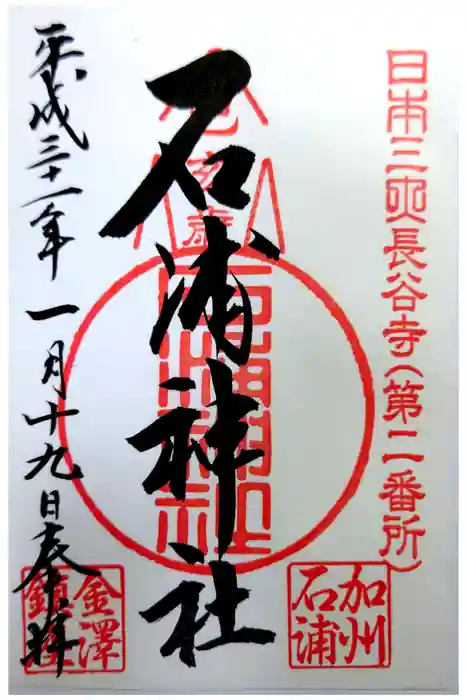 日本三所長谷寺(第二番所)
石浦神社
石浦神社
加州
石浦
平成三十一年一月十九日奉拝
金澤
鎮座